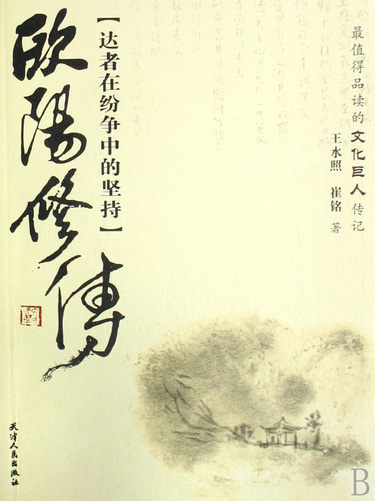 最值得品读的文化巨人传记
王水照 崔铭 著
【达者在纷争中的坚持】
歐陽修傳
天津人民出版社
B